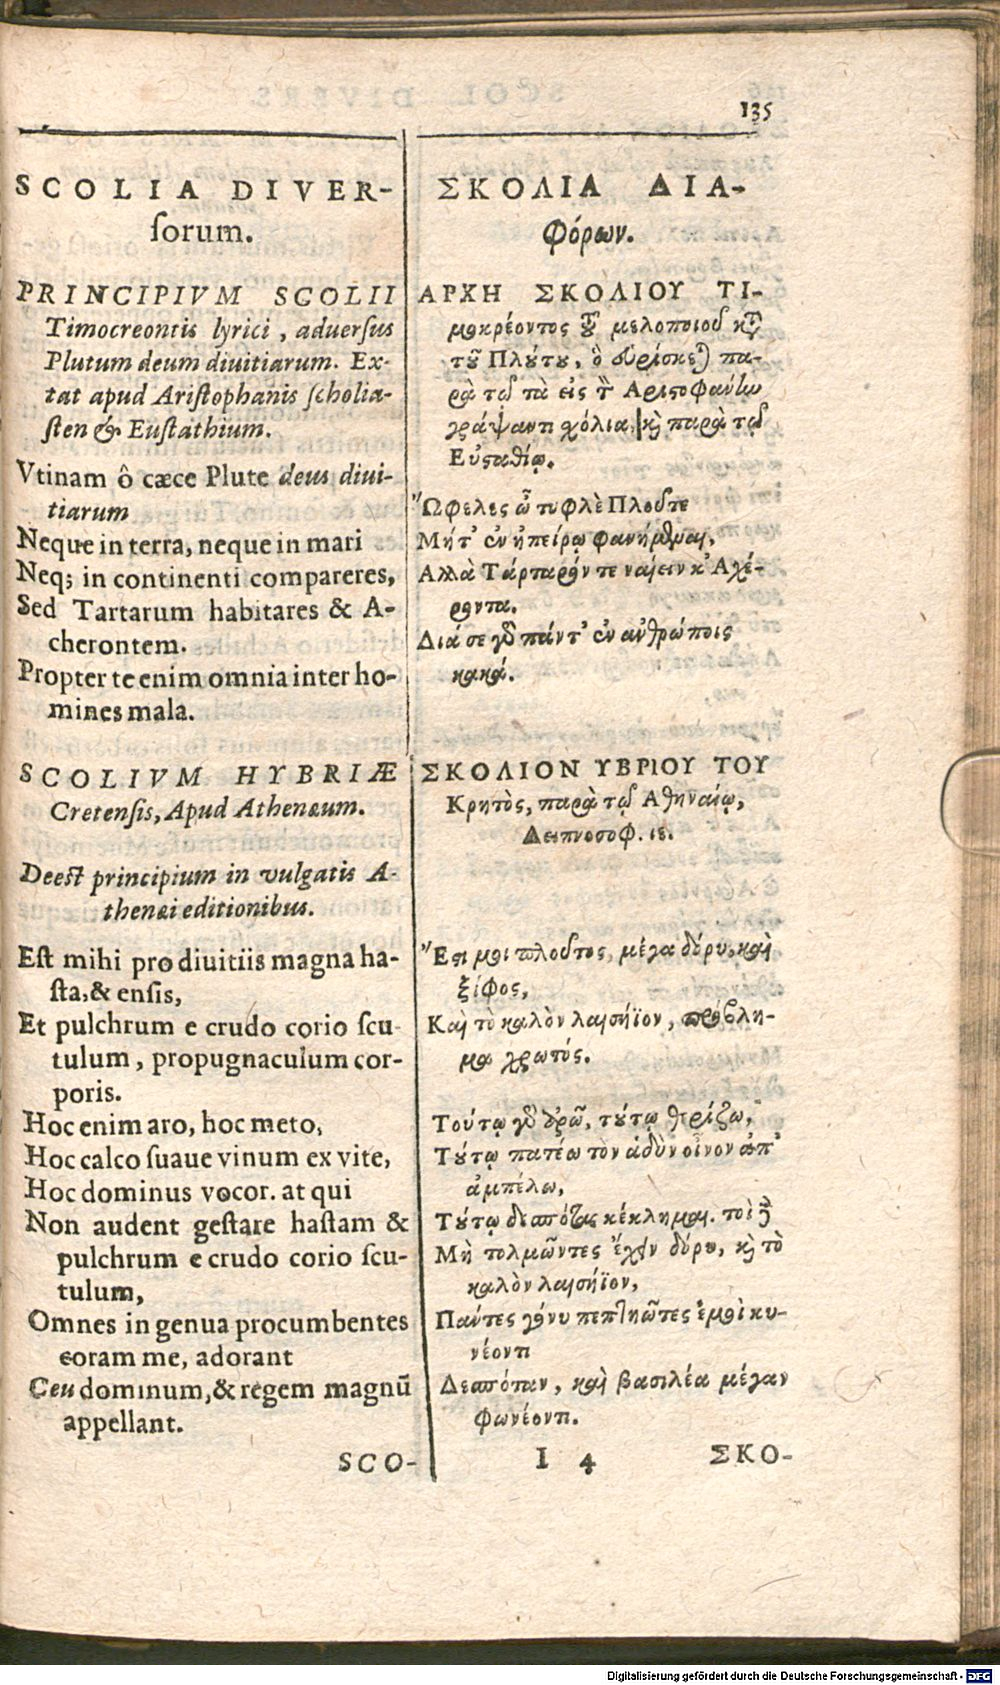 135
SCOLIA DIVER-
sorum.
PRINCIPIVM SCOLII
Timocreontis lyrici, adversus
Plutum deum divitiarum. Ex-
tat apud Aristophanis scholia-
sten & Eustathium.
Vtinam ô cæce Plute deus divi-
tiarum
Neque in terra, neque in mari
Neq; in continenti compareres,
Sed Tartarum habitares & A-
cherontem.
Propter te enim omnia inter ho-
mines mala.
SCOLIVM HYBRIÆ
Cretensis, Apud Athenæum.
Deest principium in vulgatis A-
thenæi editionibus.
Est mihi pro divitiis magna ha-
sta, & ensis,
Et pulchrum e crudo corio scu-
tulum, propugnaculum cor-
poris.
Hoc enim aro, hoc meto,
Hoc calco suave vinum ex vite,
Hoc dominus vocor. at qui
Non audent gestare hastam &
pulchrum e crudo corio scu-
tulum,
Omnes in genua procumbentes
coram me, adorant
Ceu dominum, & regem magnū
appellant.
SCO-
ΣΚΟΛΙΑ ΔΙΑ-
φόρων.
ΑΡΧΗ ΣΚΟΛΙΟΥ ΤΙ-
μοκρέοντος τοῦ μελοποιοῦ κατὰ
τοῦ Πλούτου, ὃ εὑρίσκεται πα-
ρὰ τῷ τὰ εἰς τὸν Αριστοφάνην
γράψαντι χόλια, καὶ παρὰ τῷ
Εὐσταθίῳ.
Ὤφελες ὦ τυφλὲ Πλοῦτε
Μήτ' ἐν ἠπείρῳ φανήμεναι,
Αλλὰ Τάρταρόν τε ναίειν κ' Αχέ-
ροντα.
Διά σε γὰρ πάντ' ἐν ἀνθρώποις
κακά.
ΣΚΟΛΙΟΝ ΥΒΡΙΟΥ ΤΟΥ
Κρητὸς, παρὰ τῷ Αθηναίῳ,
Δειπνοσοφ. ιε.
Ἔστι μοι πλοῦτος, μέγα δόρυ, καὶ
ξίφος,
Καὶ τὸ καλὸν λαισήϊον, πρόβλη-
μα χρωτός.
Τούτῳ γὰρ ἀρῶ, τούτῳ θερίζω,
Τούτῳ πατέω τὸν ἁδὺν οἶνον ἀπ'
ἀμπέλω,
Τούτῳ δεσπότας κέκλημαι. τοὶ δὲ
Μὴ τολμῶντες ἔχειν δόρυ, καὶ τὸ
καλὸν λαισήϊον,
Πάντες γόνυ πεπτηῶτες ἐμοὶ κυ-
νέοντι
Δεσπόταν, καὶ βασιλέα μέγαν
φωνέοντι.
I 4
ΣΚΟ-
Digitalisierung gefördert durch die Deutsche Forschungsgemeinschaft - DFG